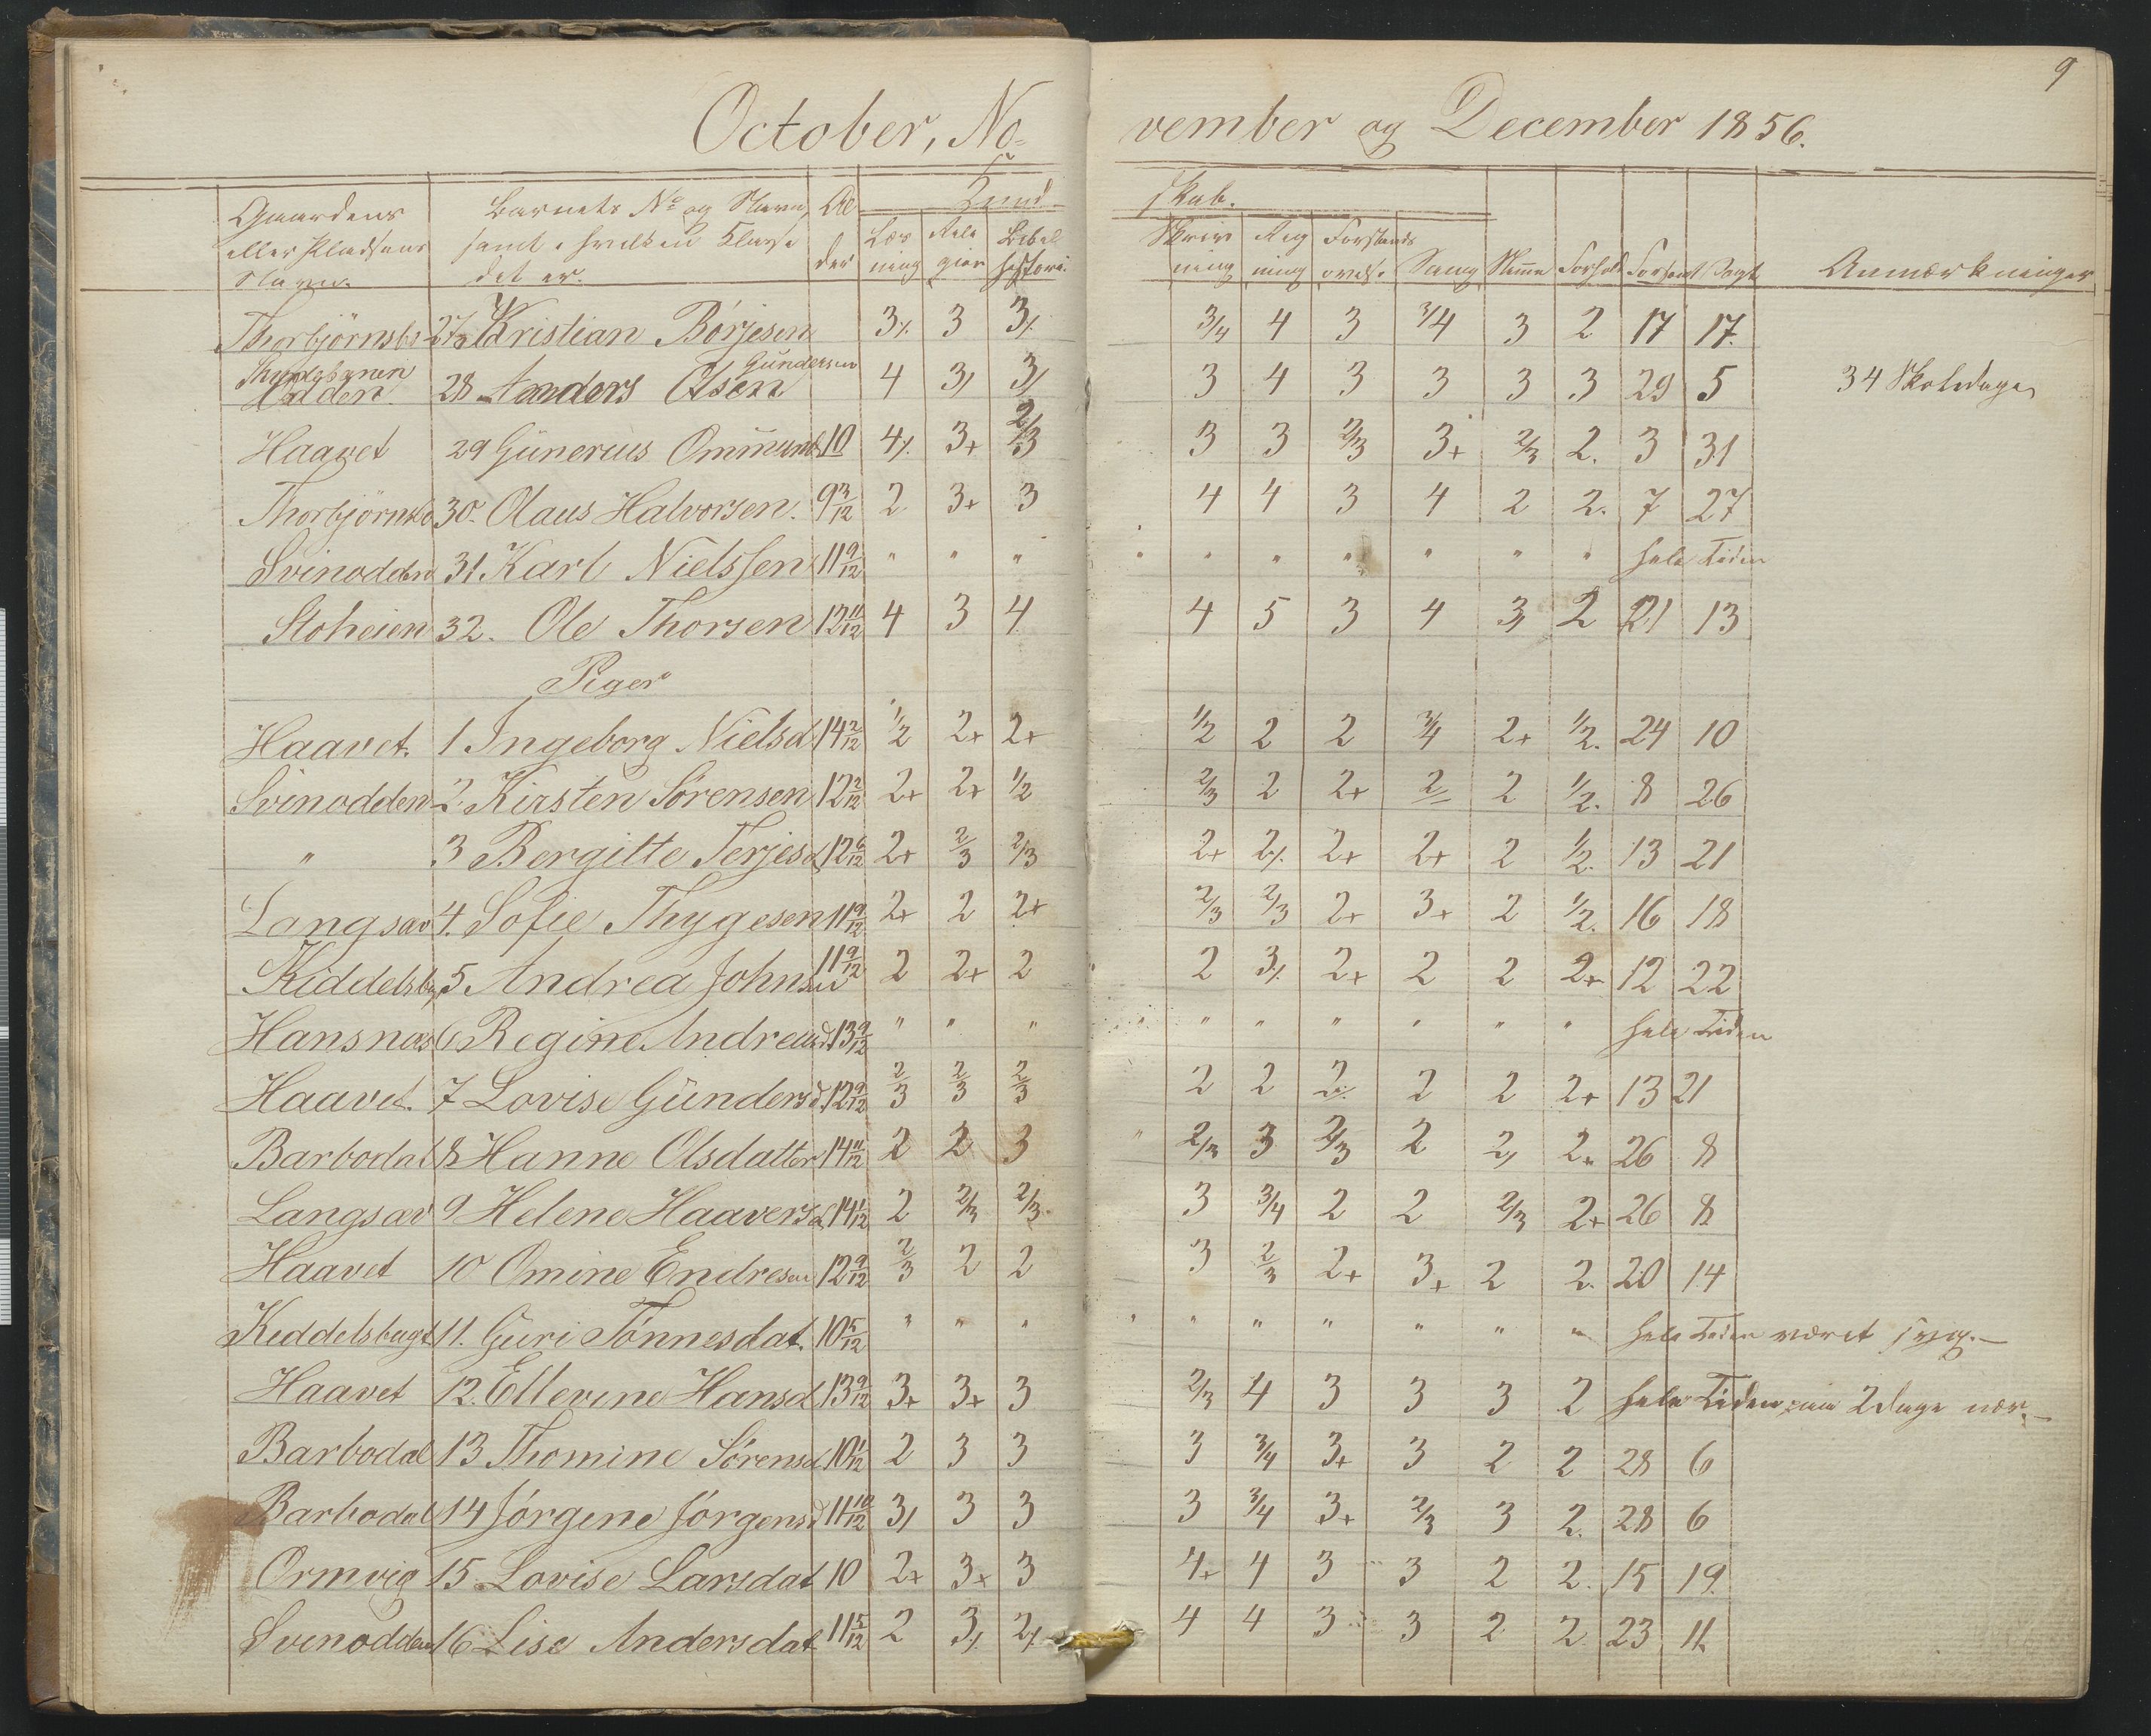 9
October, November og December 1856.
Gaardens eller Pladsens Navn. Barnets No og Navn, samt i hvilken Klasse det er. Alder Kundskab. Læsning Religion Bibelhistorie. Skrivning Regning Forstandsøvelse Sang Nemme Forhold Forsømt Søgt Anmærkninger
Thorbjörnsbo 27 Kristian Börjesen 3⁒ 3 3⁒ 3/4 4 3 3/4 3 2 17 17.
Odden 28 Anders Olsen Gundersen 4 3, 3, 3 4 3 3 3 3 29 5 34 Skoledage
Haavet 29 Günerius Ommunds 10 4⁒ 3+ 2/3 3 3 2/3 3+ 2/3 2. 3 31
Thorbjörnsbo 30. Olaus Halvorsen. 9 3/12 2 3+ 3 4 4 3 4 2 2. 7 27
Svinodden 31. Karl Nielssen 11 9/12 " " " " " " " " " hele Tiden
Stoheien 32. Ole Thorsen 12 11/12 4 3 4 4 5 3 4 3, 2 21 13
Piger
Haavet. 1 Ingeborg Nielsd 14 2/12 1/2 2+ 2+ 1/2 2 2 3/4 2+ 1/2. 24 10
Svinodden 2. Kirsten Sörensen 12 2/12 2+ 2+ 1/2 2/3 2 2+ 2 2 1/2. 8 26
" 3 Bergitte Terjesd 12 6/12 2+ 2/3 2/3 2+ 2⁒ 2+ 2+ 2 1/2. 13 21
Langsæv 4. Sofie Thygesen 11 9/12 2+ 2 2+ 2/3 2/3 2+ 3+ 2 1/2. 16 18
Kiddelsbg 5 Andrea Johnsen 11 9/12 2 2+ 2 2 3⁒ 2+ 2 2 2+ 12 22
Hansnæs 6 Regine Andreasd. 13 9/12 " " " " " " " " " hele Tiden
Haavet. 7 Lovise Gündersd. 12 9/12 2/3 2/3 2/3 2 2 2 2 2 2+ 13 21
Barbodal 8 Hanne Olsdatter 14 11/12 2 2 3 2/3 3 2/3 2 2, 2+ 26 8
Langsæv 9 Helene Haaversd 14 1/12 2 2/3 2/3 3 3/4 2 2 2/3 2+ 26 8
Haavet 10 Omine Endresen 12 9/12 2/3 2 2 3 2/3 2+ 3+ 2 2. 20 14
Kiddelsbugt 11. Guri Tönnesdat. 10 5/12 " " " " " " " " " hele Tiden været syg.—
Haavet 12. Ellevine Hansd 13 9/12 3+ 3+ 3 2/3 4 3 3 3 2 hele Tiden, 2 dage nær.—
Barbodal 13 Thomine Sörensd 10 1/12 2 3 3 3 3/4 3+ 3 2 2 28 6
Barbodal 14 Jörgine Jörgensd 11 10/12 3, 3 3 3 3/4 3+ 2/3 3 2. 28 6
Ormvig 15 Lovise Larsdat 10 2+ 3+ 3 4+ 4 3 3 2 2. 15 19.
Svinodden 16 Lise Andersdat 11 5/12 2 3⁒ 2⁒ 4 4 3 3 2 2. 23 11.